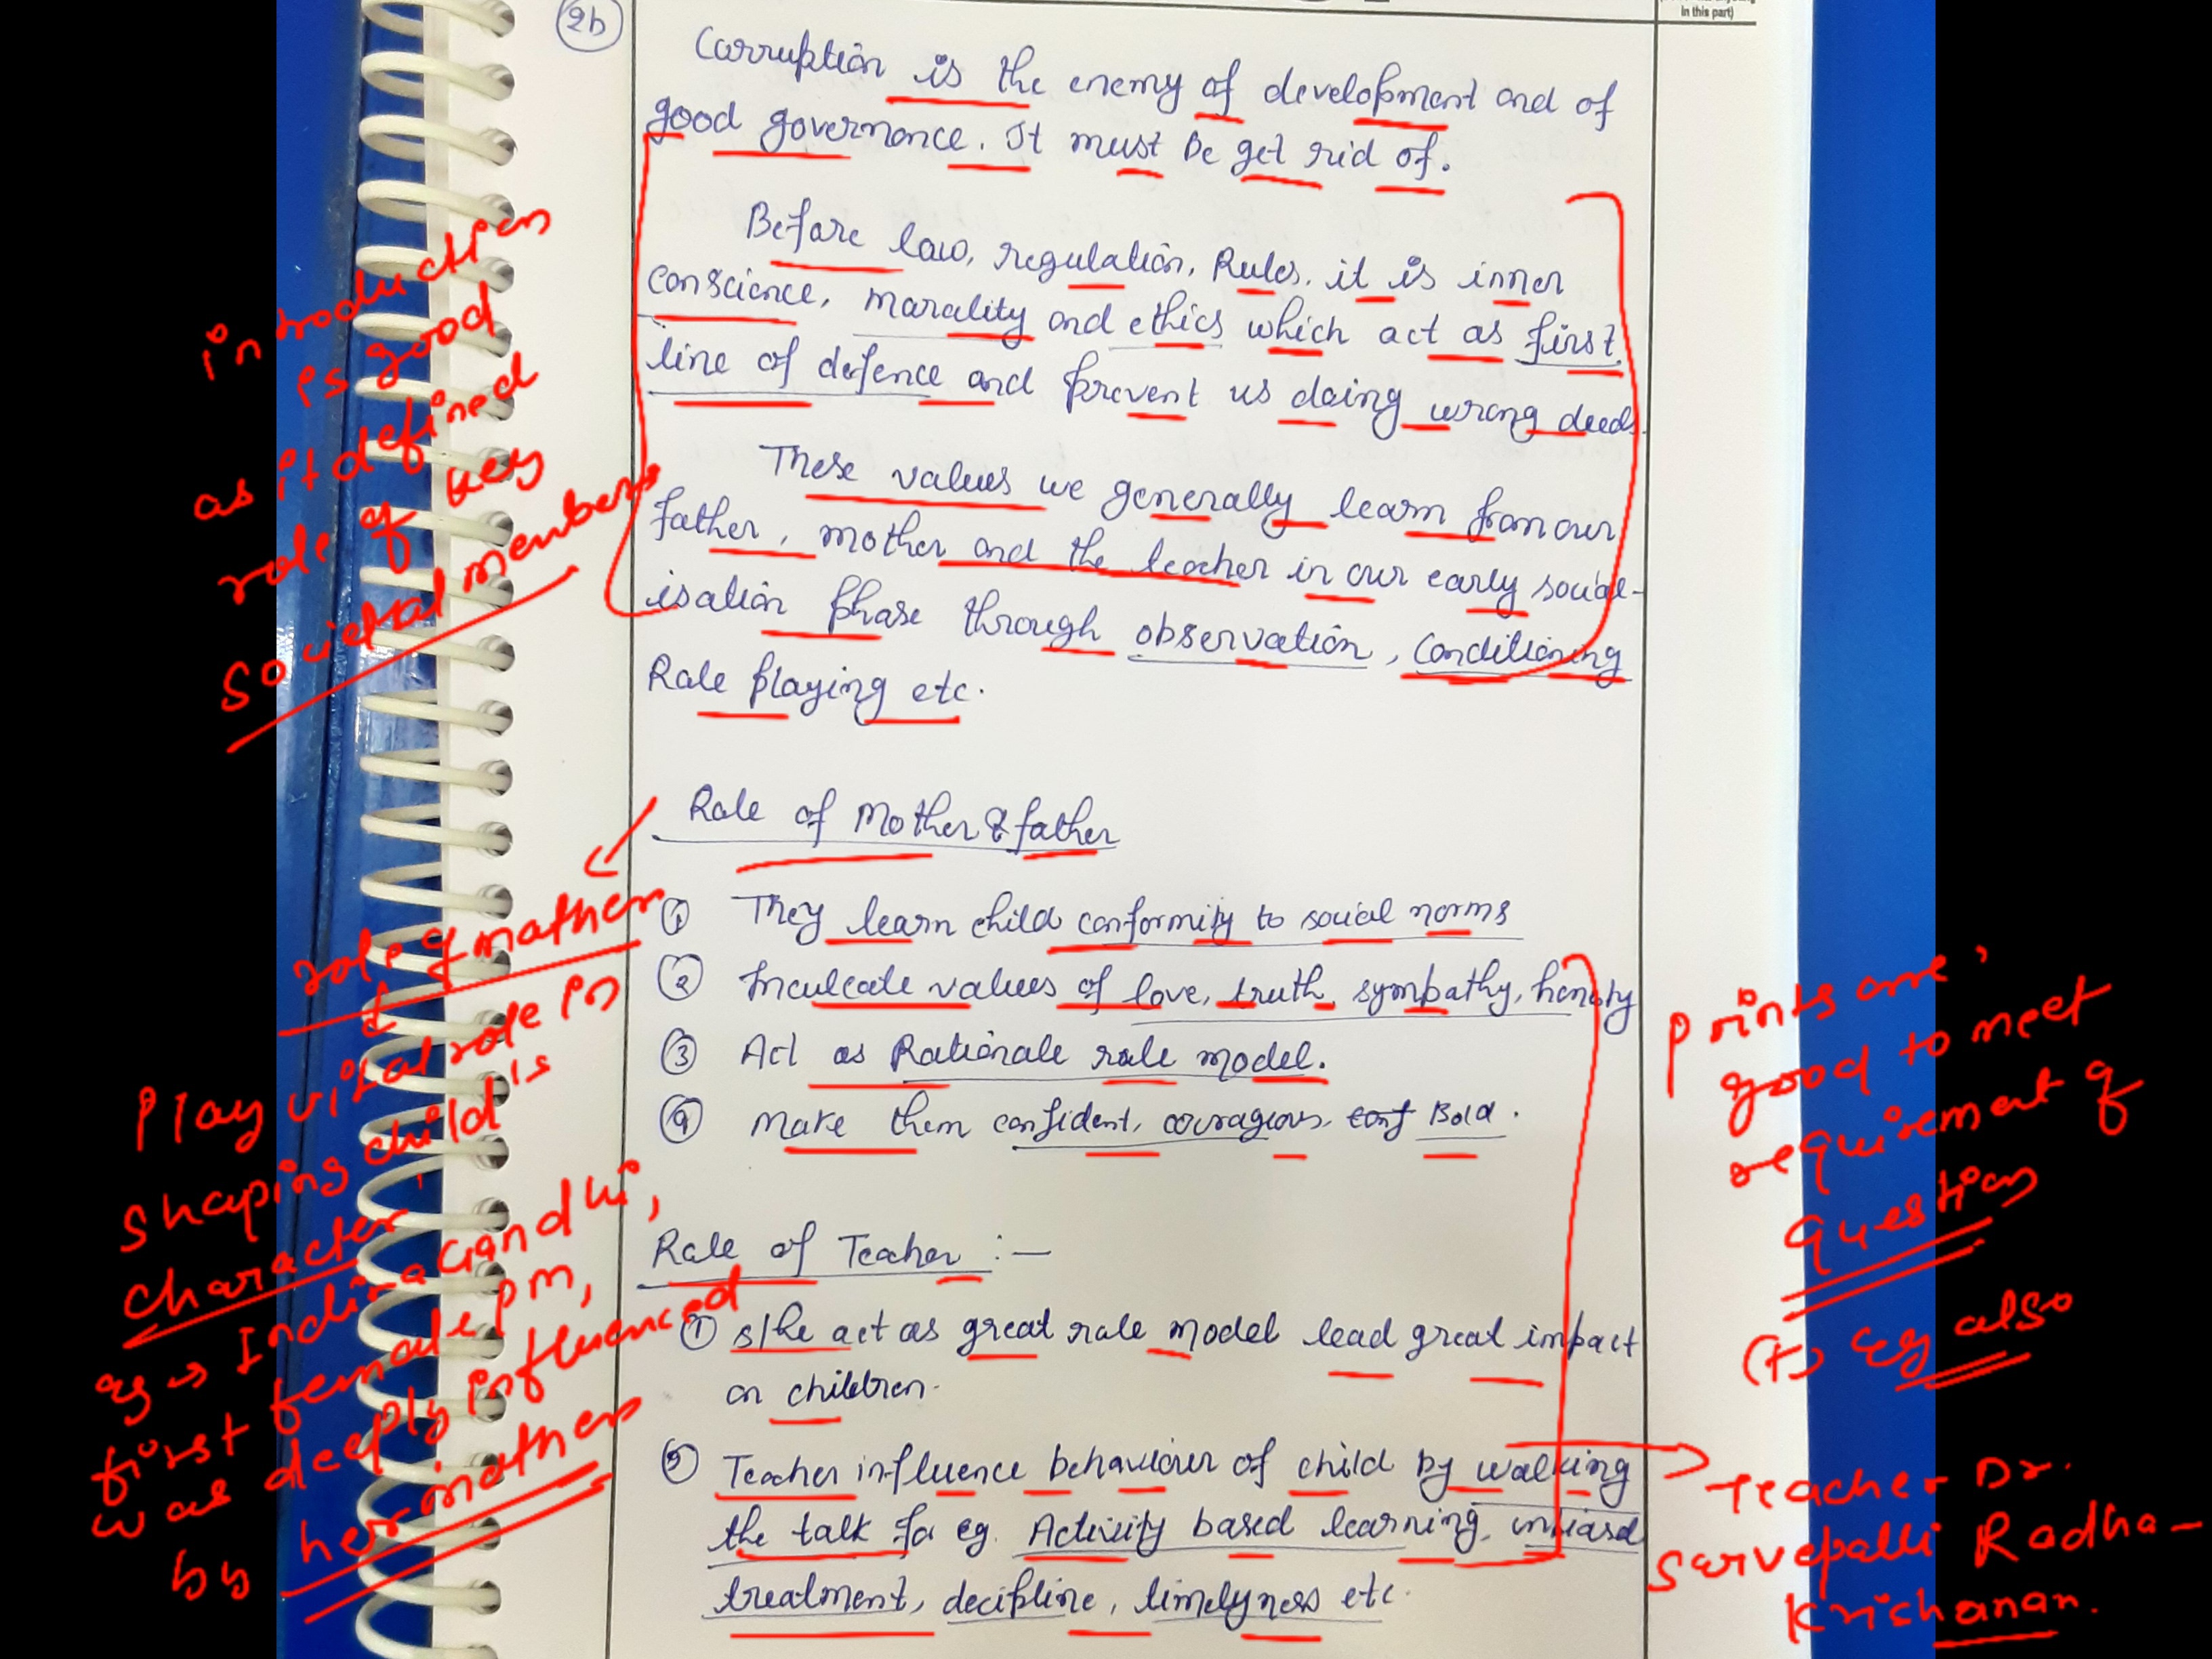 in this part)
2b
Corruption is the enemy of development and of
good governance. It must be get rid of.
Before law, regulation, Rules, it is inner
conscience, marality and ethics which act as first
line of defence and prevent us doing wrong deeds.
These values we generally learn from our
father, mother and the teacher in our early social-
isation phase through observation, conditioning
Role playing etc.
introduction
is good
as it defined
role of key
societal members
Role of Mother & father
① They learn child conformity to social norms
② Inculcate values of love, truth, sympathy, honesty
③ Act as Rationale role model.
④ Make them confident, couragious, conf Bold.
role of mother
Play vital role in
shaping child's
character
eg → Indira Gandhi,
first female pm,
was deeply influenced
by her mother
Points are
good to meet
requirement of
question
(+) eg also
Role of Teacher :—
① s/he act as great role model lead great impact
on children.
② Teacher influence behaviour of child by walking
the talk for eg. Activity based learning, unbiased
treatment, decipline, timelyness etc.
Teacher Dr.
Sarvepalli Radha-
Krishanan.